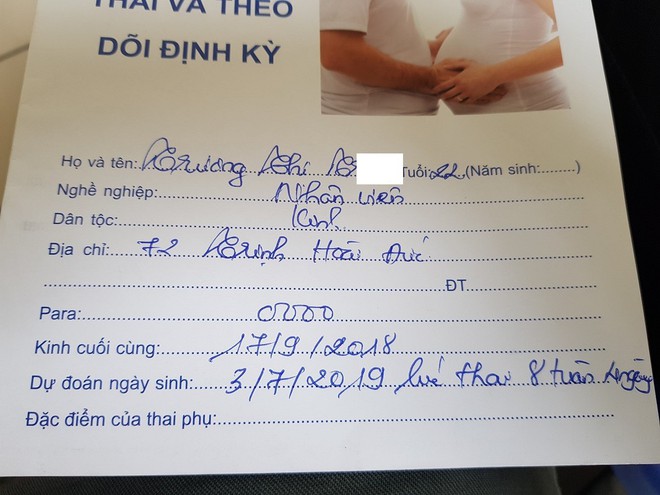 THAI VÀ THEO
DÕI ĐỊNH KỲ
Họ và tên: Trương Thi Tuổi: 22 (Năm sinh:........)
Nghề nghiệp: Nhân viên
Dân tộc: Kinh
Địa chỉ: 72 Trịnh Hoài Đức
ĐT
Para: 0000
Kinh cuối cùng: 17/9/2018
Dự đoán ngày sinh: 3/7/2019 lúc thai 8 tuần 4 ngày
Đặc điểm của thai phụ: